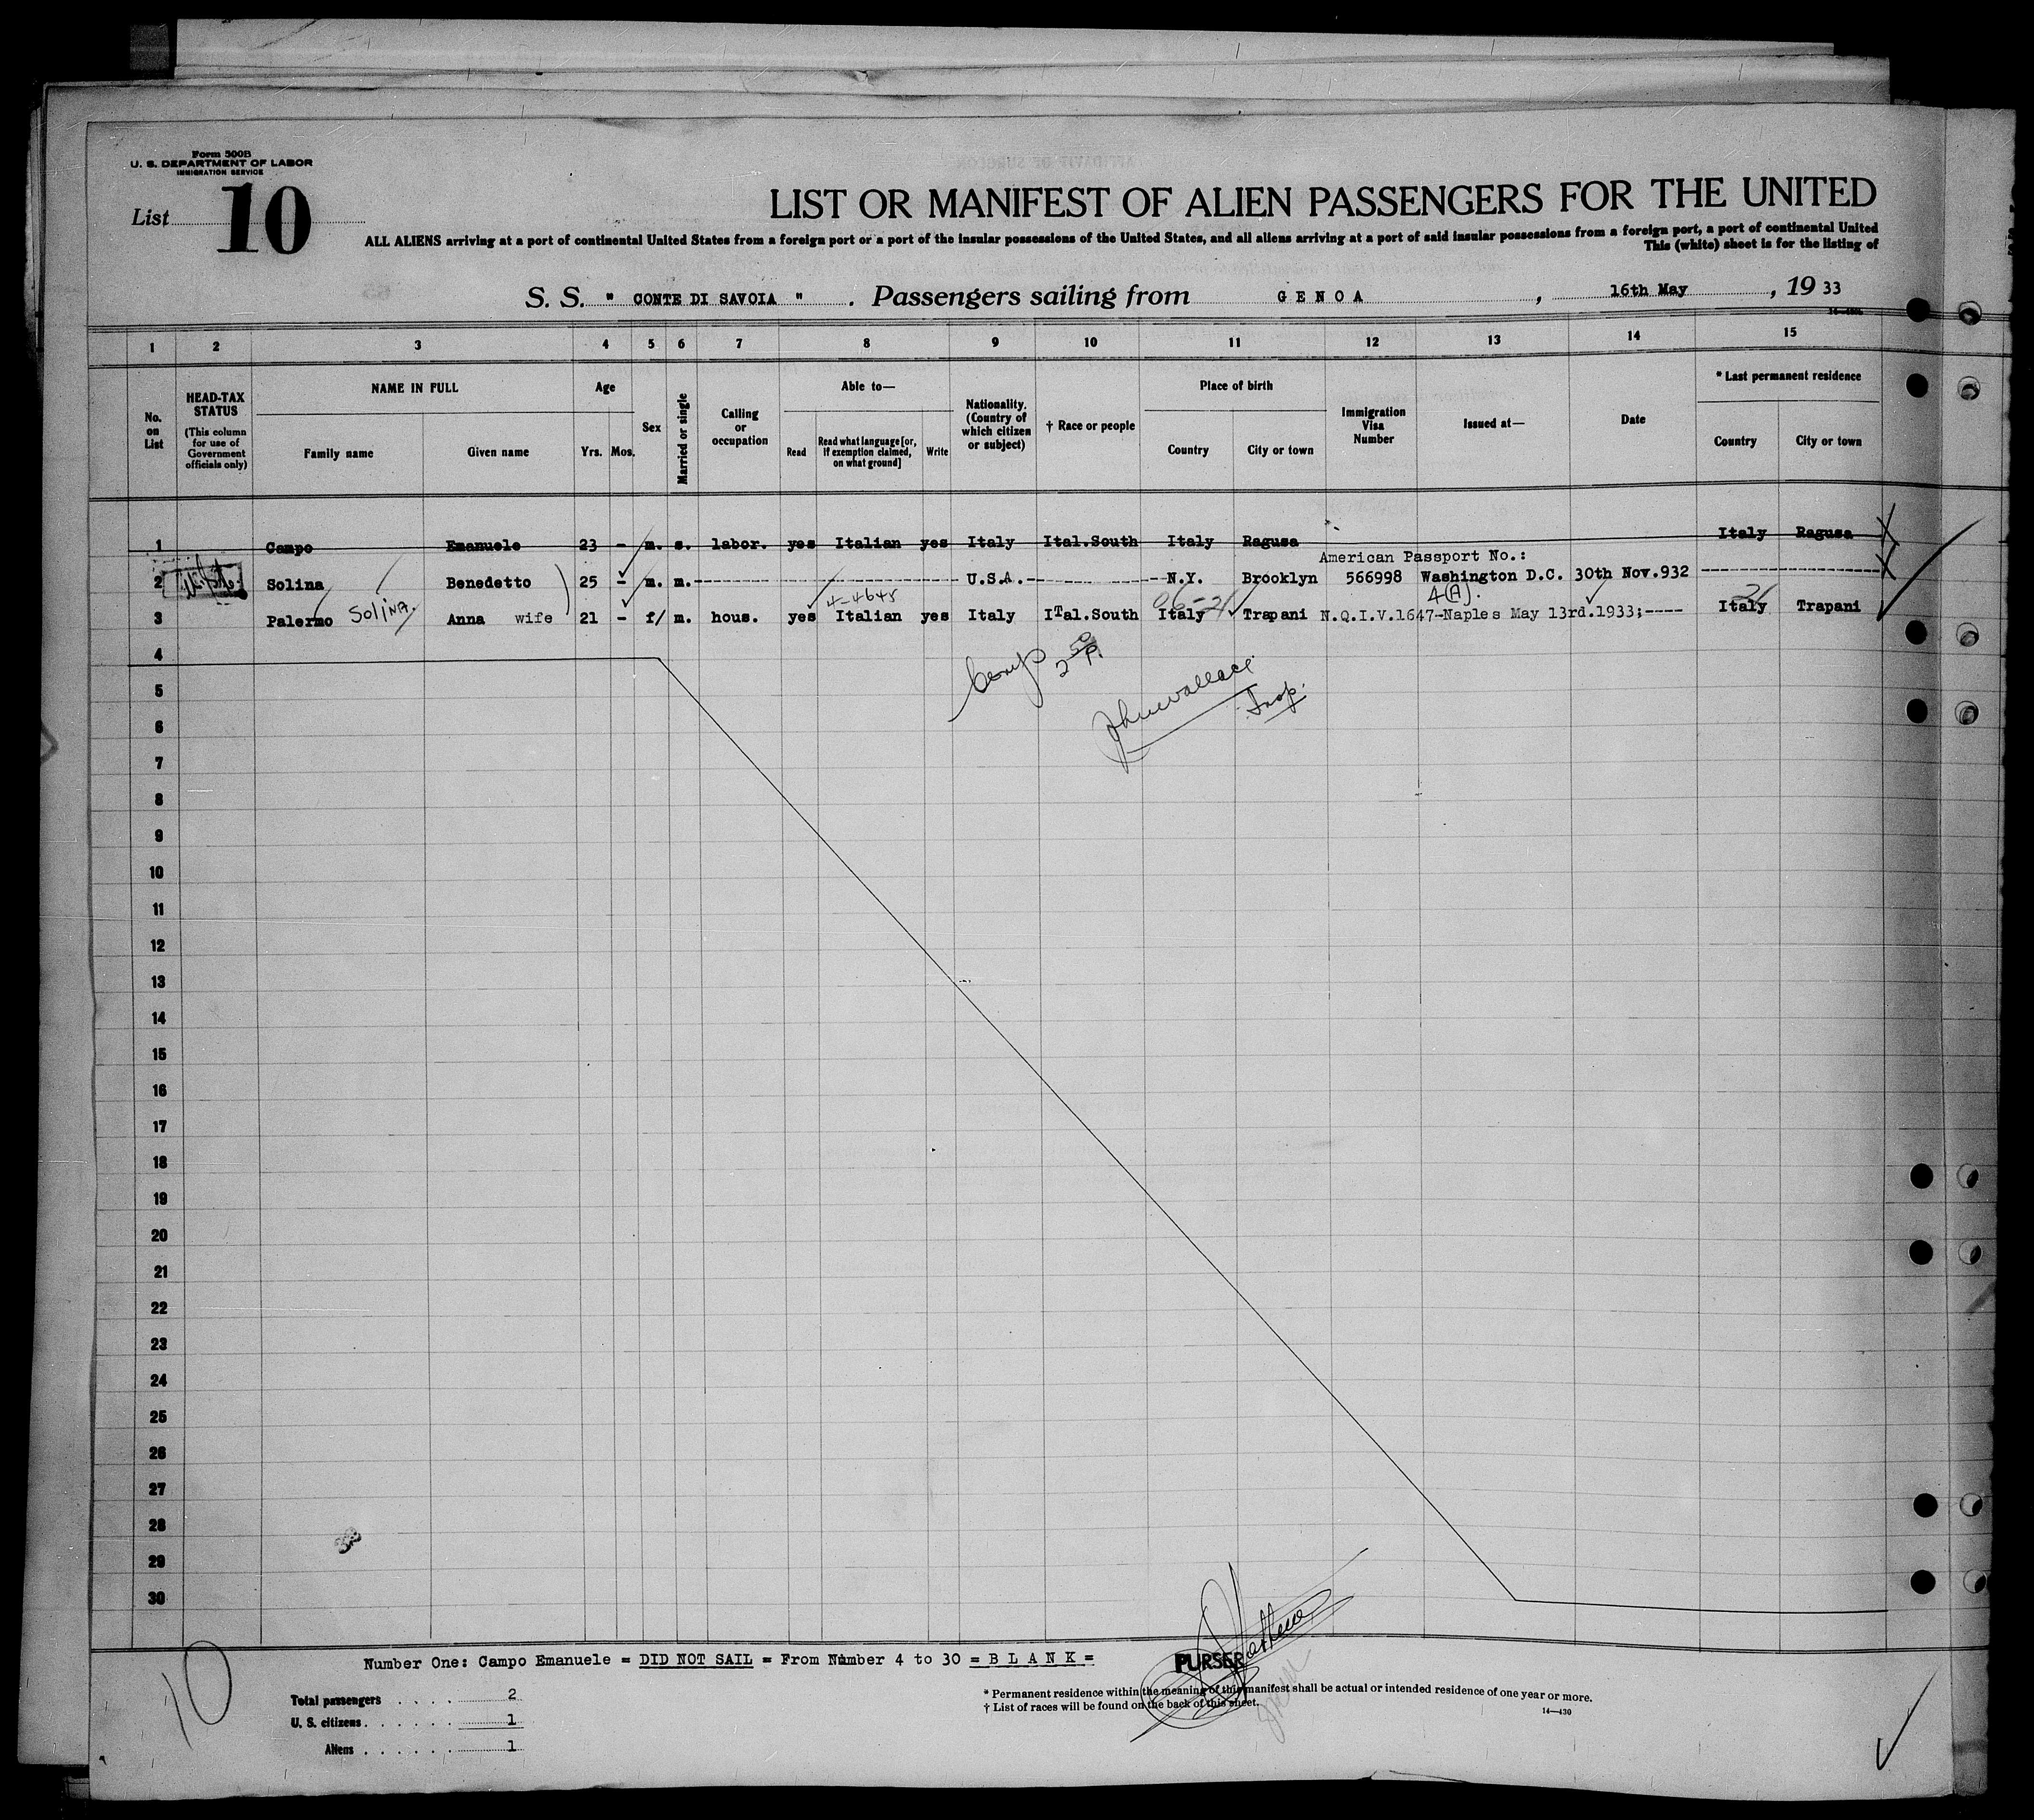 Form 500B
U. S. DEPARTMENT OF LABOR
IMMIGRATION SERVICE
List 10
LIST OR MANIFEST OF ALIEN PASSENGERS FOR THE UNITED
ALL ALIENS arriving at a port of continental United States from a foreign port or a port of the insular possessions of the United States, and all aliens arriving at a port of said insular possessions from a foreign port, a port of continental United
This (white) sheet is for the listing of
S. S. " CONTE DI SAVOIA " . Passengers sailing from GENOA , 16th May , 19 33
1 2 3 4 5 6 7 8 9 10 11 12 13 14 15
No. on List
HEAD-TAX STATUS
(This column for use of Government officials only)
NAME IN FULL
Family name Given name
Age
Yrs. Mos.
Sex
Married or single
Calling or occupation
Able to—
Read Read what language [or, if exemption claimed, on what ground] Write
Nationality. (Country of which citizen or subject)
† Race or people
Place of birth
Country City or town
Immigration Visa Number
Issued at—
Date
* Last permanent residence
Country City or town
1 Campo Emanuele 23 - m. s. labor. yes Italian yes Italy Ital.South Italy Ragusa Italy Ragusa
American Passport No.:
2 Solina Benedetto 25 - m. m. U.S.A. N.Y. Brooklyn 566998 Washington D.C. 30th Nov.932
4-4645 06-21 4(A). 21
3 Palermo Solina Anna wife 21 - f/ m. hous. yes Italian yes Italy ITal.South Italy Trapani N.Q.I.V.1647-Naples May 13rd.1933;---- Italy Trapani
4
5
John Wallace
Insp.
6
7
8
9
10
11
12
13
14
15
16
17
18
19
20
21
22
23
24
25
26
27
28
29
30
Number One: Campo Emanuele = DID NOT SAIL = From Number 4 to 30 = B L A N K =
PURSER
10
Total passengers . . . . 2
U. S. citizens . . . . . . 1
Aliens . . . . . . 1
* Permanent residence within the meaning of this manifest shall be actual or intended residence of one year or more.
† List of races will be found on the back of this sheet.
14—430